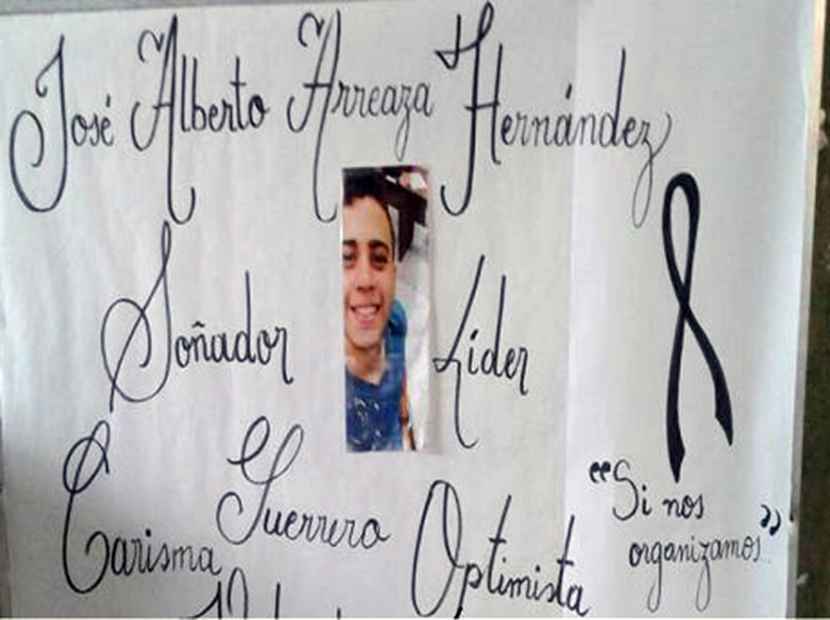 José Alberto Arreaza Hernández
Soñador Líder
Carisma Guerrero Optimista
“Si nos
organizamos”